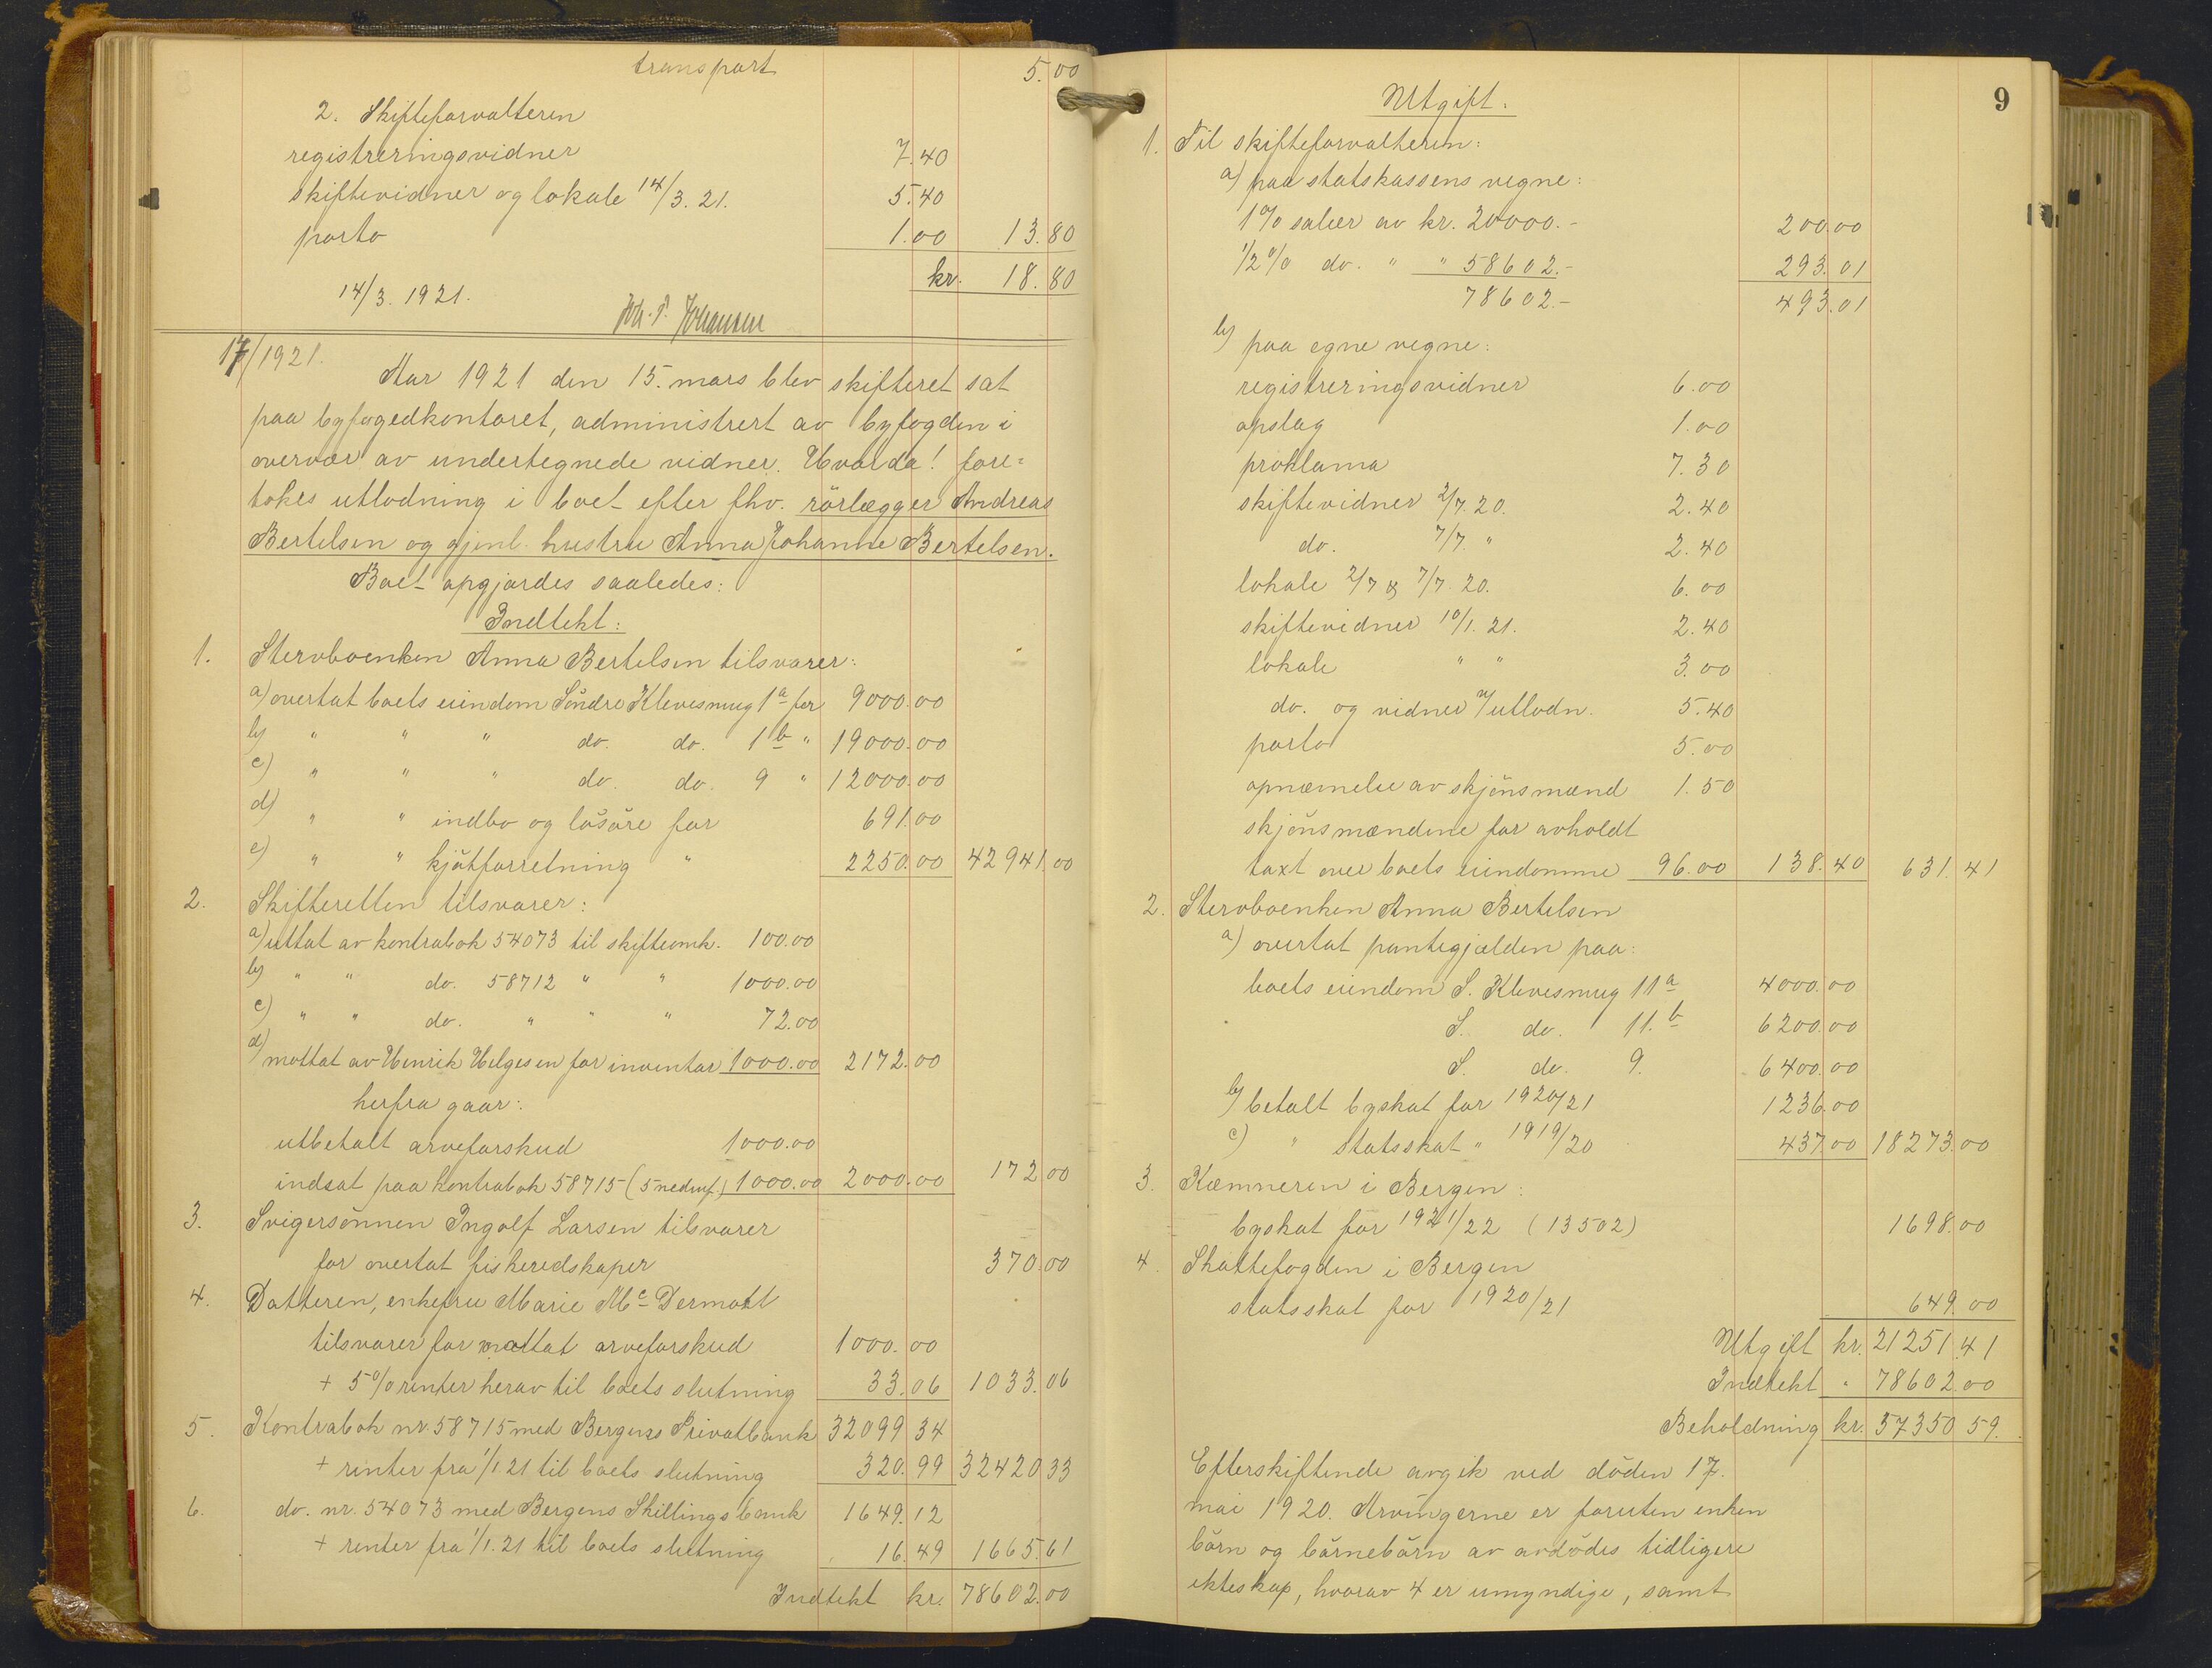 transport 5.00
2. Skifteforvalteren
registreringsvidner 7.40
skiftevidner og lokale 14/3. 21. 5.40
porto 1.00 13.80
kr. 18.80
14/3. 1921.
Joh. P. Johansen
17/1921.
Aar 1921 den 15. mars blev skifteret sat
paa byfogedkontoret, administrert av byfogden i
overvær av undertegnede vidner. Hvorda! fore=
tokes utlodning i boet efter fhv. rörlægger Andreas
Bertelsen og gjenl. hustru Anna Johanne Bertelsen.
Boet opgjordes saaledes:
Indtekt:
1. Stervboenken Anna Bertelsen tilsvarer:
a) overtat boets eiendom Söndre Klevesmug 1a for 9000.00
b) " " " do. do. 1b " 19000.00
c) " " " do. do. 9 " 12000.00
d) " " indbo og lösöre for 691.00
e) " " kjötforretning " 2250.00 42941.00
2. Skifteretten tilsvarer:
a) uttat av kontrabok 54073 til skifteomk. 100.00
b) " " do. 58712 " " 1000.00
c) " " do. " " " 72.00
d) mottat av Henrik Helgesen for inventar 1000.00 2172.00
herfra gaar:
utbetalt arveforskud 1000.00
indsat paa kontrabok 58715 (5 nednf.) 1000.00 2000.00 172.00
3. Svigersönnen Ingolf Larsen tilsvarer
for overtat fiskeredskaper 370.00
4. Datteren, enkefru Marie Mc Dermott
tilsvarer for mottat arveforskud 1000.00
+ 5% renter herav til boets slutning 33.06 1033.06
5. Kontrabok nr. 58715 med Bergens Privatbank 32099 34
+ renter fra 1/1. 21 til boets slutning 320.99 32420 33
6. do. nr. 54073 med Bergens Skillingsbank 1649.12
+ renter fra 1/1. 21 til boets slutning 16.49 1665.61
Indtekt kr. 78602.00
9
Utgift.
1. Til skifteforvalteren:
a) paa statskassens vegne:
1% salær av kr. 20000.- 200.00
1/2% do. " " 58602.- 293.01
78602.- 493.01
b) paa egne vegne:
registreringsvidner 6.00
opslag 1.00
proklama 7.30
skiftevidner 2/7. 20. 2.40
do. 7/7. " 2.40
lokale 2/7 & 7/7. 20. 6.00
skiftevidner 10/1. 21. 2.40
lokale " " 3.00
do. og vidner v/utlodn. 5.40
porto 5.00
opnævnelse av skjönsmænd 1.50
skjönsmændene for avholdt
taxt over boets eiendomme 96.00 138.40 631.41
2. Stervboenken Anna Bertelsen
a) overtat pantegjælden paa:
boets eiendom S. Klevesmug 11a 4000.00
S. do. 11.b 6200.00
S. do. 9. 6400.00
b) betalt byskat for 1920/21 1236.00
c) " statsskat " 1919/20 437.00 18273.00
3. Kæmneren i Bergen:
byskat for 1921/22 (13502) 1698.00
4. Skattefogden i Bergen
statsskat for 1920/21 649.00
Utgift kr. 21251.41
Indtekt " 78602.00
Beholdning kr. 57350 59.
Efterskiftende avgik ved döden 17.
mai 1920. Arvingerne er foruten enken
börn og börnebörn av avdödes tidligere
ekteskap, hvorav 4 er umyndige, samt